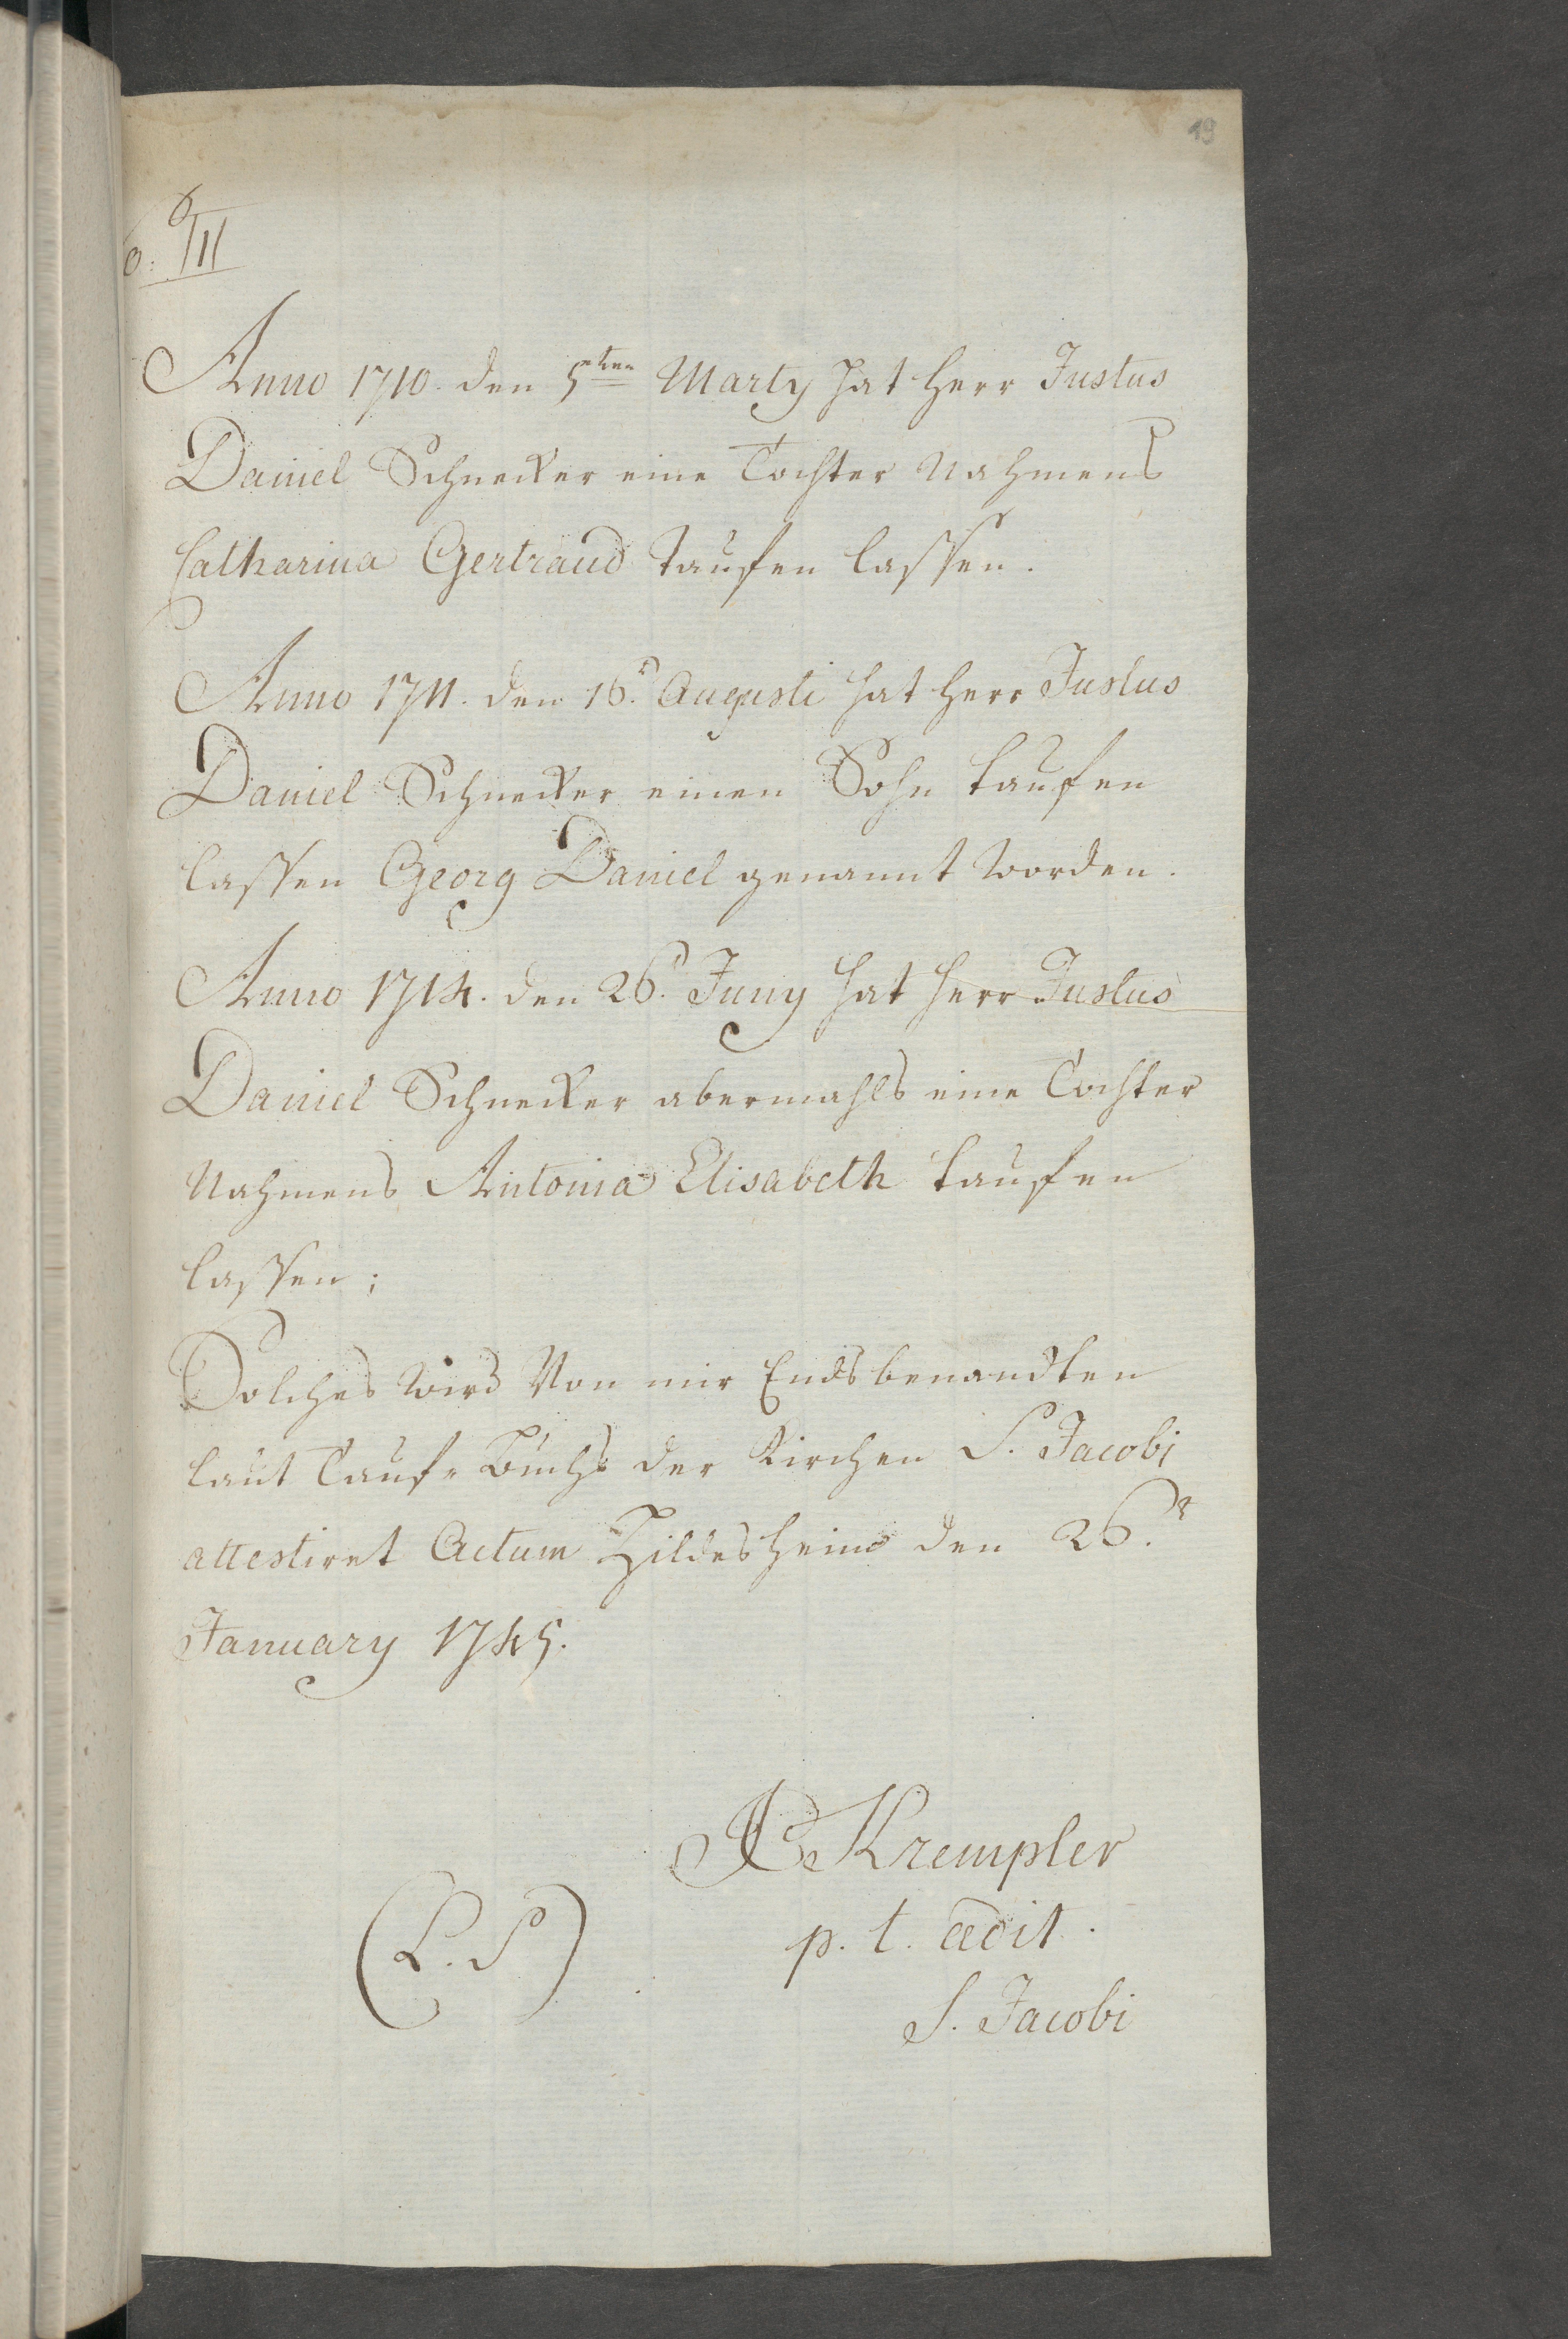 19
6/II
Anno 1710. den 5ten Marty hat Herr Justus
Daniel Schnecker eine Tochter Nahmens
Catharina Gertraud taufen lassen.
Anno 1711. den 16t. Augusti hat Herr Justus
Daniel Schnecker einen Sohn taufen
lassen Georg Daniel genannt worden.
Anno 1714. den 26t. Juny hat Herr Justus
Daniel Schnecker abermahls eine Tochter
Nahmens Antonia Elisabeth taufen
lassen;
Solches wird Von mir Endsbenandten
laut Tauf-Buchs der Kirchen S. Jacobi
attestiret Actum Hildesheim den 26.t
January 1745.
Krempler
(L. S)
p. t. ædit.
S. Jacobi